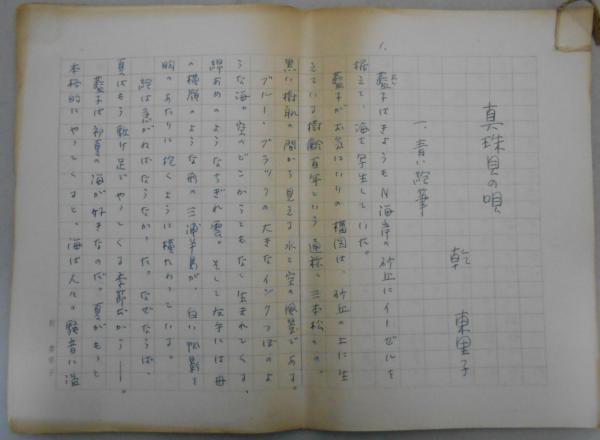 真珠貝の唄
乾 東里子
一、青い絵筆
1.
藍子はきょうもN海岸の砂丘にイーゼルを
据えて、海を写生していた。
藍子がお気にいりの構図は、砂丘の上に生
えている樹齢百年という通称、三本松の、
黒い樹私の間から見える水と空の風景である。
ブルー・ブラックの大きなインクつぼのよ
うな海。空のどこからともなく生まれてくる、
綿あめのようなちぎれ雲。そして左手には母
の横顔のような形の三浦半島が、白い帆影を
胸のあたりに抱くように横たわっている。
絵は急がねばならなかった。なぜならば、
夏はもう駈け足でやってくる季節だから――。
藍子は初夏の海が好きなのだ。夏がもっと
本格的にやってくると、海は人々の騒音に溢